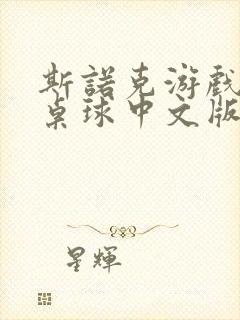 斯諾克游戲
桌球中文版
星輝